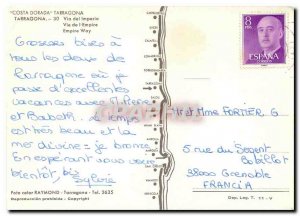 "COSTA DORADA" TARRAGONA
TARRAGONA. - 30 Via del Imperio
Vía de l'Empire
Empire Way.
Grosses bises à
tous les deux de
Tarragone où je
passe d'excellentes
vacances avec M. Pierre
et Babeth. le temps
est très beau et la
mer divine = je bronze!
En espérant vous revoir
bientôt, bis Sylvie
8 PTAS
ESPAÑA
CORREOS
Mr et Mme FORTIER G.
5 rue du Sergent
Bobillot
38000 Grenoble
FRANCIA
Foto color RAYMOND - Tarragona - Tel. 3625
Reproducción prohibida - Copyright
Dep. Leg. T.